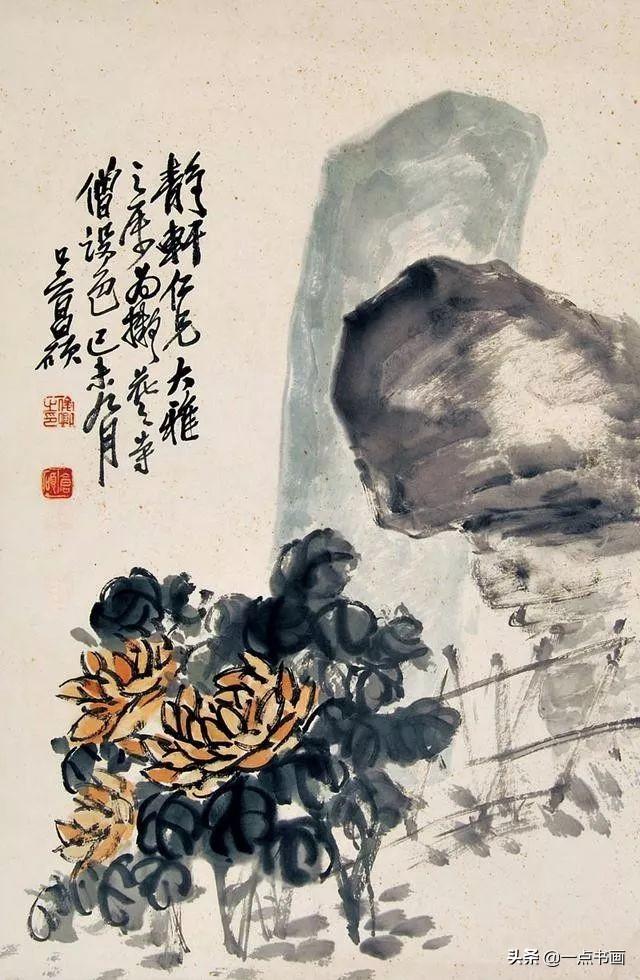 靜軒仁兄大雅
之屬為擬花之寺
僧設色己未九月
吳昌碩
俊卿之印
倉碩
头条 @一点书画